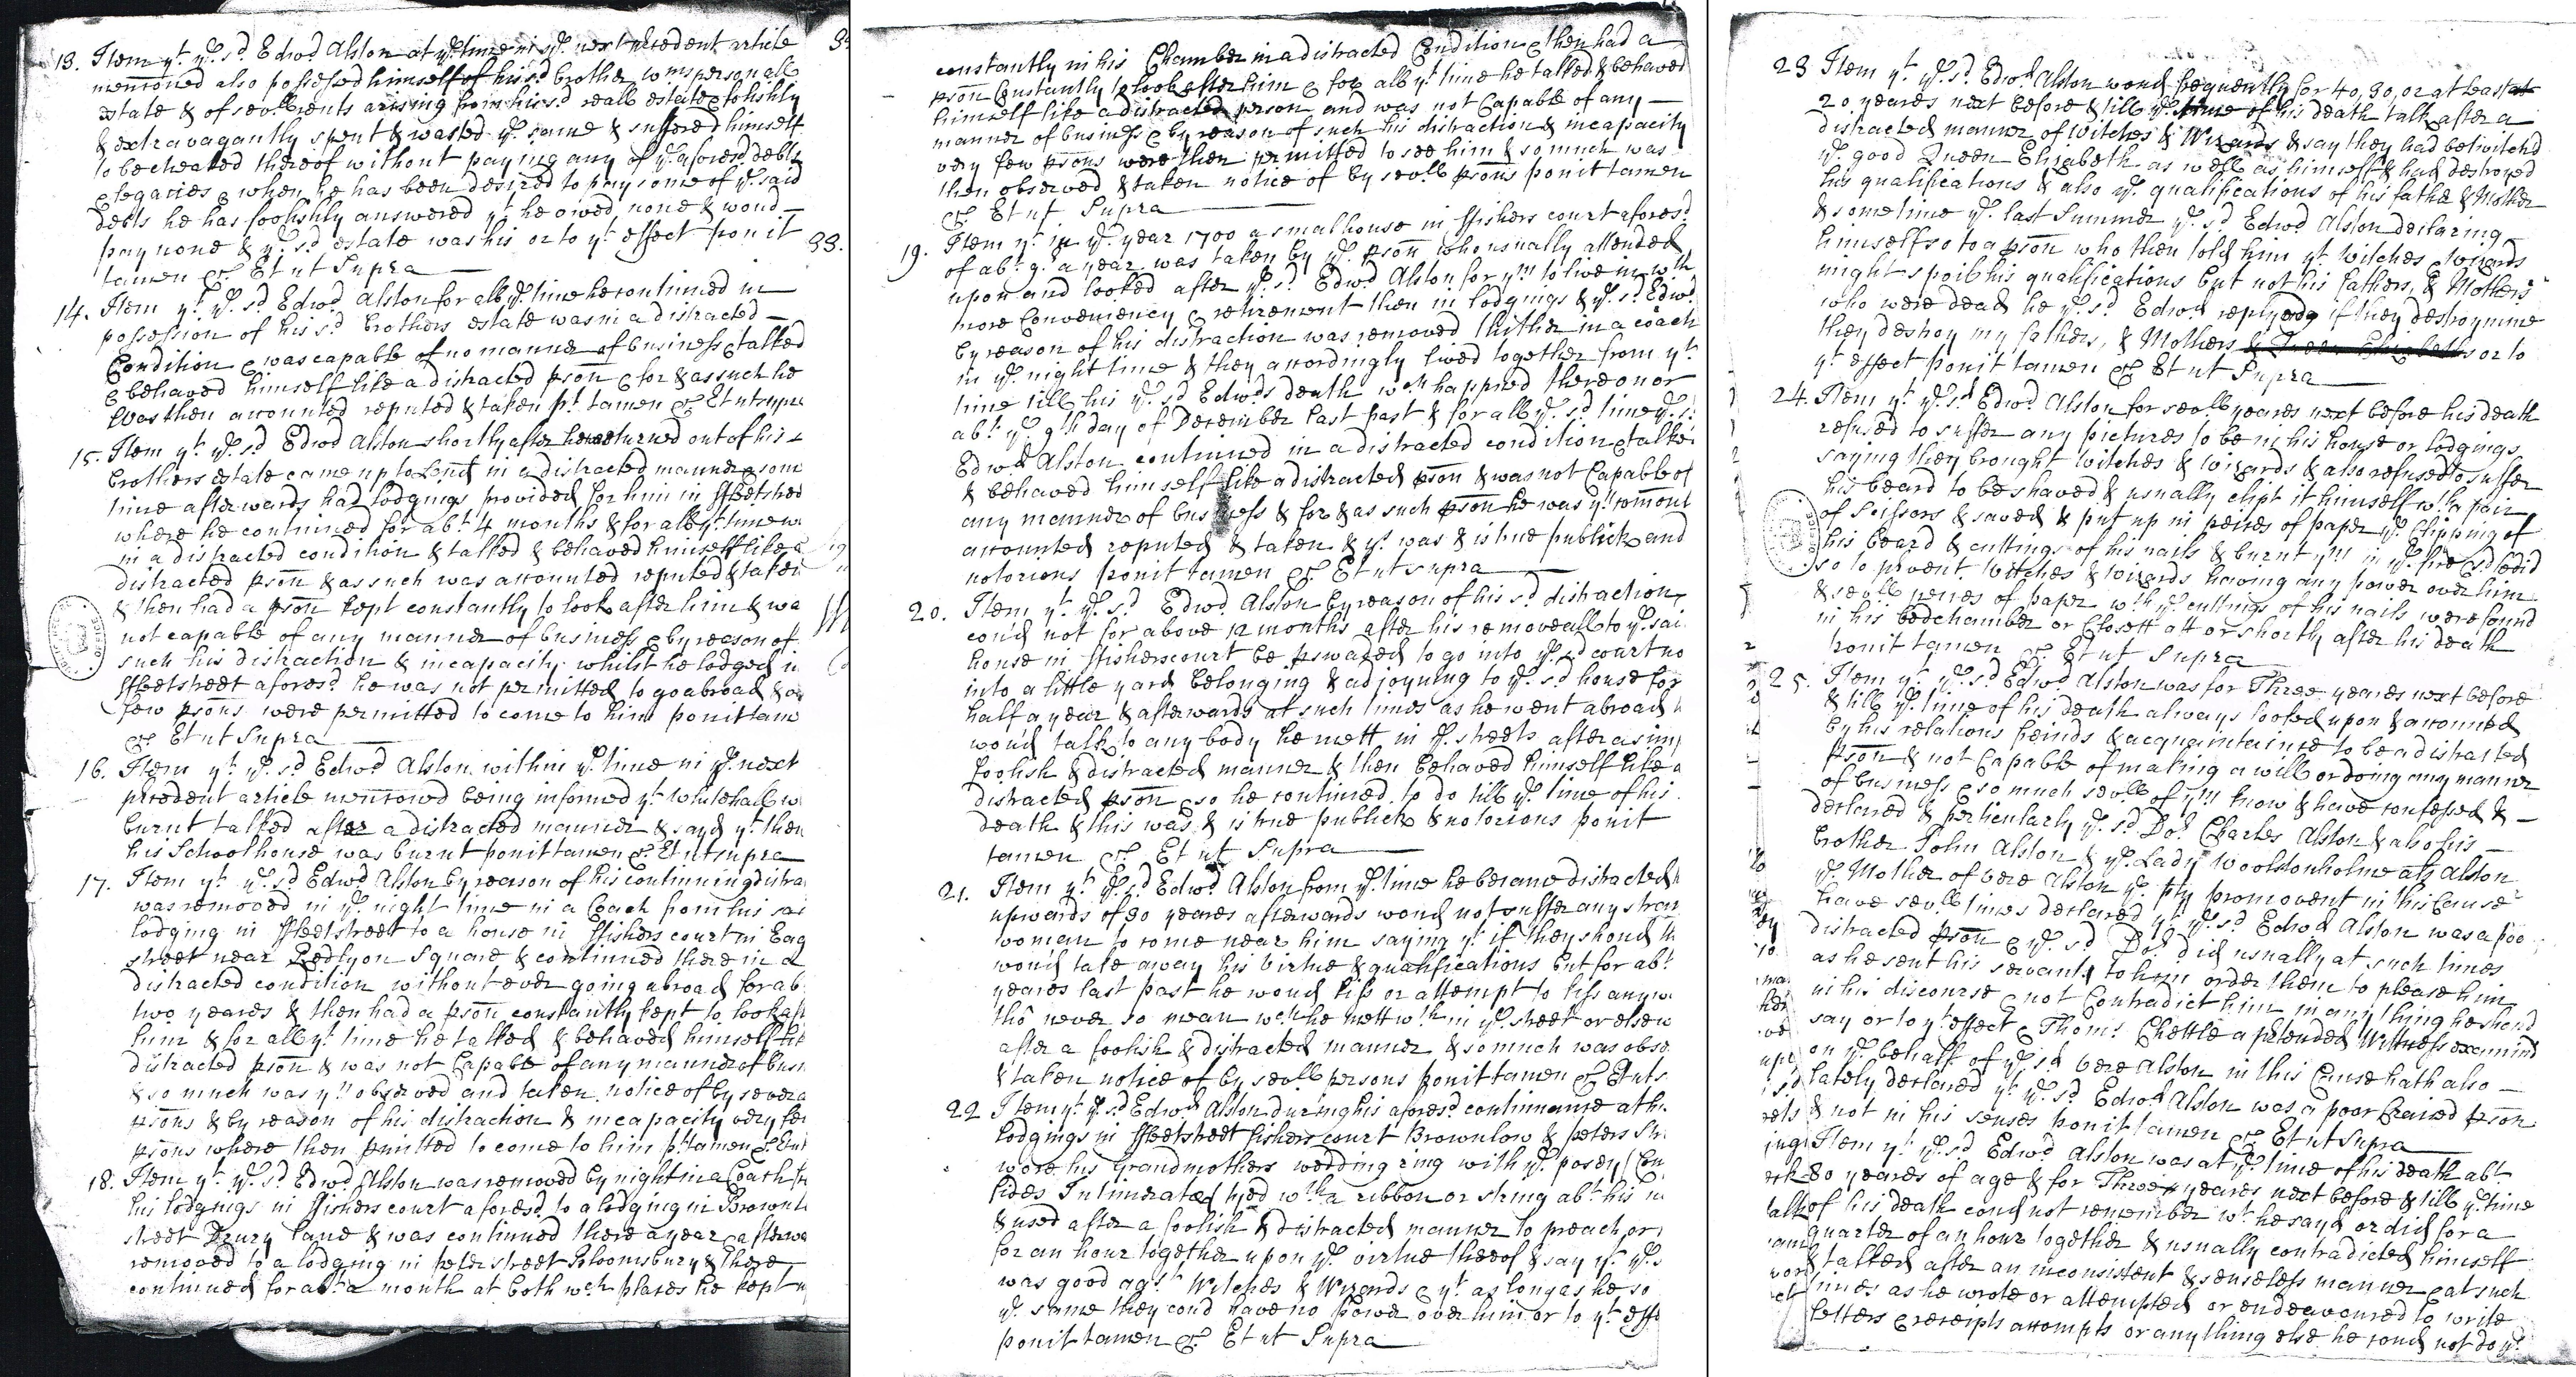 13. Item yt. ye. sd. Edwd. Alston at ye. time in ye. next precedent article
mentioned also possessed himself of his sd. brother personall
estate & of sevll. rents arising from his sd. reall estate & foolishly
& extravagantly spent & wasted ye. same & suffered himself
to be cheated thereof without paying any of ye. aforesd. debts
& legacies & when he has been desired to pay some of ye. said
debts he has foolishly answered yt. he owed none & woud
pay none & ye. sd. estate was his or to yt. effect ponit
tamen &. Et ut Supra
14. Item yt. ye. sd. Edwd. Alston for all ye. time he continued in
possession of his sd. brothers estate was in a distracted
Condition & was capable of no manner of business & talked
& behaved himself like a distracted pson & for & as such he
was then accounted reputed & taken pt. tamen & Et ut supra
15. Item yt. ye. sd. Edwd. Alston shortly after he returned out of his
brothers estate came up to Lond in a distracted manner & som
time afterwards had lodgings provided for him in ffleetstreet
where he continued for abt. 4 months & for all yt. time w
in a distracted condition & talked & behaved himself like a
distracted pson & as such was accounted reputed & taken
& then had a pson kept constantly to look after him & wa
not capable of any manner of business & by reason of
such his distraction & incapacity whilst he lodged in
ffleetstreet aforesd. he was not permitted to go abroad &
few psons were permitted to come to him ponit tam
&. Et ut Supra
16. Item yt. ye. sd. Edwd. Alston within ye. time in ye. next
precedent article mentioned being informed yt. Whitehall w
burnt talked after a distracted manner & sayd yt. then
his Schoolhouse was burnt ponit tamen &. Et ut supra
17. Item yt. ye. sd. Edwd. Alston by reason of his continuing distra
was removed in ye. night time in a Coach from his sai
lodging in ffleetstreet to a house in ffishers court in Eag
street near Redlyon Square & continued there in a
distracted condition without ever going abroad for ab
two yeares & then had a pson constantly kept to look aft
him & for all yt. time he talked & behaved himself lik
distracted pson & was not Capable of any manner of busi
& so much was yn observed and taken notice of by severa
psons & by reason of his distraction & incapacity very few
psons where then pmitted to come to him pt. tamen & Et ut
18. Item yt. ye. sd. Edwd. Alston was removed by night in a Coach fr
his lodgings in ffishers court aforesd. to a lodging in Brownl
street Drury lane & was continued there a year & afterwa
removed to a lodging in peter street Bloomsbury & there
continued for abt. a month at both wch places he kept
constantly in his Chamber in a distracted Condition & then had a
pson Constantly to look after him & for all yt. time he talked & behaved
himself like a distracted person and was not Capable of any
manner of business & by reason of such his distraction & incapacity
very few psons were then permitted to see him & so much was
then observed & taken notice of by sevll. psons ponit tamen
&. Et ut Supra
19. Item yt. in ye. year 1700 a smal house in ffishers court aforesd.
of abt. 9. a year was taken by ye. pson who usually attended
upon and looked after ye. sd. Edwd. Alston for ym to live in wth
more Conveniency & retirement then in lodgings & ye. sd. Edwd.
by reason of his distraction was removed thither in a coach
in ye. night time & they accordingly lived together from yt.
time till his ye. sd. Edwds death wch happned there on or
abt. ye. 9th day of December last past & for all ye. sd. time ye. s
Edwd Alston continued in a distracted condition & talke
& behaved himself like a distracted pson & was not Capable of
any manner of business & for & as such pson he was yn comont
accounted reputed & taken & yt. was & is true publick and
notorious ponit tamen &. Et ut supra
20. Item yt. ye. sd. Edwd. Alston by reason of his sd. distraction
coud not for above 12 months after his removeall to ye. sai
house in ffisherscourt be pswaded to go into ye. sd court no
into a little yard belonging & adjoyning to ye. sd house for
half a year & afterwards at such times as he went abroad
woud talk to any body he mett in ye. streets after a simp
foolish & distracted manner & then behaved himself like a
distracted pson & so he continued to do till ye. time of his
death & this was & is true publick & notorious ponit
tamen &. Et ut Supra
21. Item yt. ye. sd Edwd. Alston from ye. time he became distracted
upwards of 30 yeares afterwards woud not suffer any stran
woman to come near him saying yt. if they shoud th
woud take away his Virtue & qualifications but for abt.
yeares last past he woud kiss or attempt to kiss any w
tho never so mean wch he mett wth in ye. street or elsew
after a foolish & distracted manner & so much was obse
& taken notice of by sevll persons ponit tamen & Et ut s
22 Item yt. ye. sd Edwd. Alston during his aforesd. continuance at h
lodgings in ffleetstreet ffishers court Brownlow & peters Str
wore his Grandmothers wedding ring with ye. posey (
fides Intimerata) tyed wth a ribbon or string abt. his
& used after a foolish & distracted manner to preach or
for an hour together upon ye. virtue thereof & say yt. ye. s
was good agst Witches & Wizards & yt. as long as he so
ye. same they coud have no power over him or to yt. effe
ponit tamen &. Et ut Supra
23 Item yt. ye. sd. Edwd. Alston woud frequently for 40, 30, or at least
20 yeares next before & till ye. time of his death talk after a
distracted manner of Witches & Wizards & say they had bewitchd
ye. good Queen Elizabeth as well as himself & had destroyed
his qualifications & also ye. qualifications of his father & Mother
& some time ye. last Summer ye. sd. Edwd. Alston declaring
himself so to a pson who then told him yt. Witches & Wizards
might spoil his qualifications but not his fathers, & Mothers
who were dead he ye. sd. Edwd. replyed if they destroy mine
they destroy my fathers, & Mothers & Queen Elizabeths or to
yt. effect ponit tamen &. Et ut Supra
24. Item yt. ye. sd Edwd. Alston for sevll yeares next before his death
refused to suffer any pictures to be in his house or lodgings
saying they brought Witches & Wizards & also refused to suffer
his beard to be shaved & usually clipt it himself wth a pair
of Scissors & saved & put up in peices of paper ye. Clipping of
his beard & cuttings of his nails & burnt ym in ye. fire & did
so to prevent Witches & Wizards having any power over him
& sevll peices of paper wth ye. cuttings of his nails were found
in his bedchamber or Closett att or shortly after his death
ponit tamen &. Et ut Supra
25. Item yt. ye. sd Edwd Alston was for Three yeares next before
& till ye. time of his death always looked upon & accounted
by his relations freinds & acquaintaince to be a distracted
pson & not Capable of making a will or doing any manner
of business & so much sevll. of ym know & have confessed &
declared & perticularly ye. sd. Dor. Charles Alston & also his
brother John Alston & ye. Lady Woolstonholme als Alston
ye. Mother of Vere Alston ye. pty promovent in this Cause
have sevll times declared yt. ye. sd. Edwd Alston was a poo
distracted pson & ye. sd Dor did usually at such times
as he sent his servants to him order them to please him
in his discourse & not Contradict him in any thing he shoud
say or to yt. effect & Thoms. Chettle a pretended Wittness examind
on ye. behalf of ye. sd Vere Alston in this Cause hath also
lately declared yt. ye. sd. Edwd. Alston was a poor Craized pson
& not in his senses ponit tamen &. Et ut Supra
Item yt. ye. sd. Edwd. Alston was at ye. time of his death abt.
80 yeares of age & for Three yeares next before & till ye. time
of his death coud not remember wt. he sayd or did for a
quarter of an hour together & usually contradicted himself
& talked after an inconsistent & senseless manner & at such
times as he wrote or attempted or endeavoured to write
letters & receipts accompts or any thing else he coud not do yt.